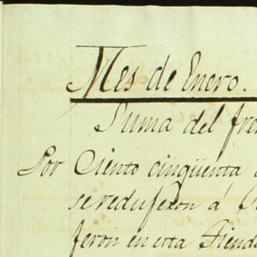 Mes de Enero.
Suma del fren
Por Ciento cinqüenta
se redugeron á
feron en esta Tiend